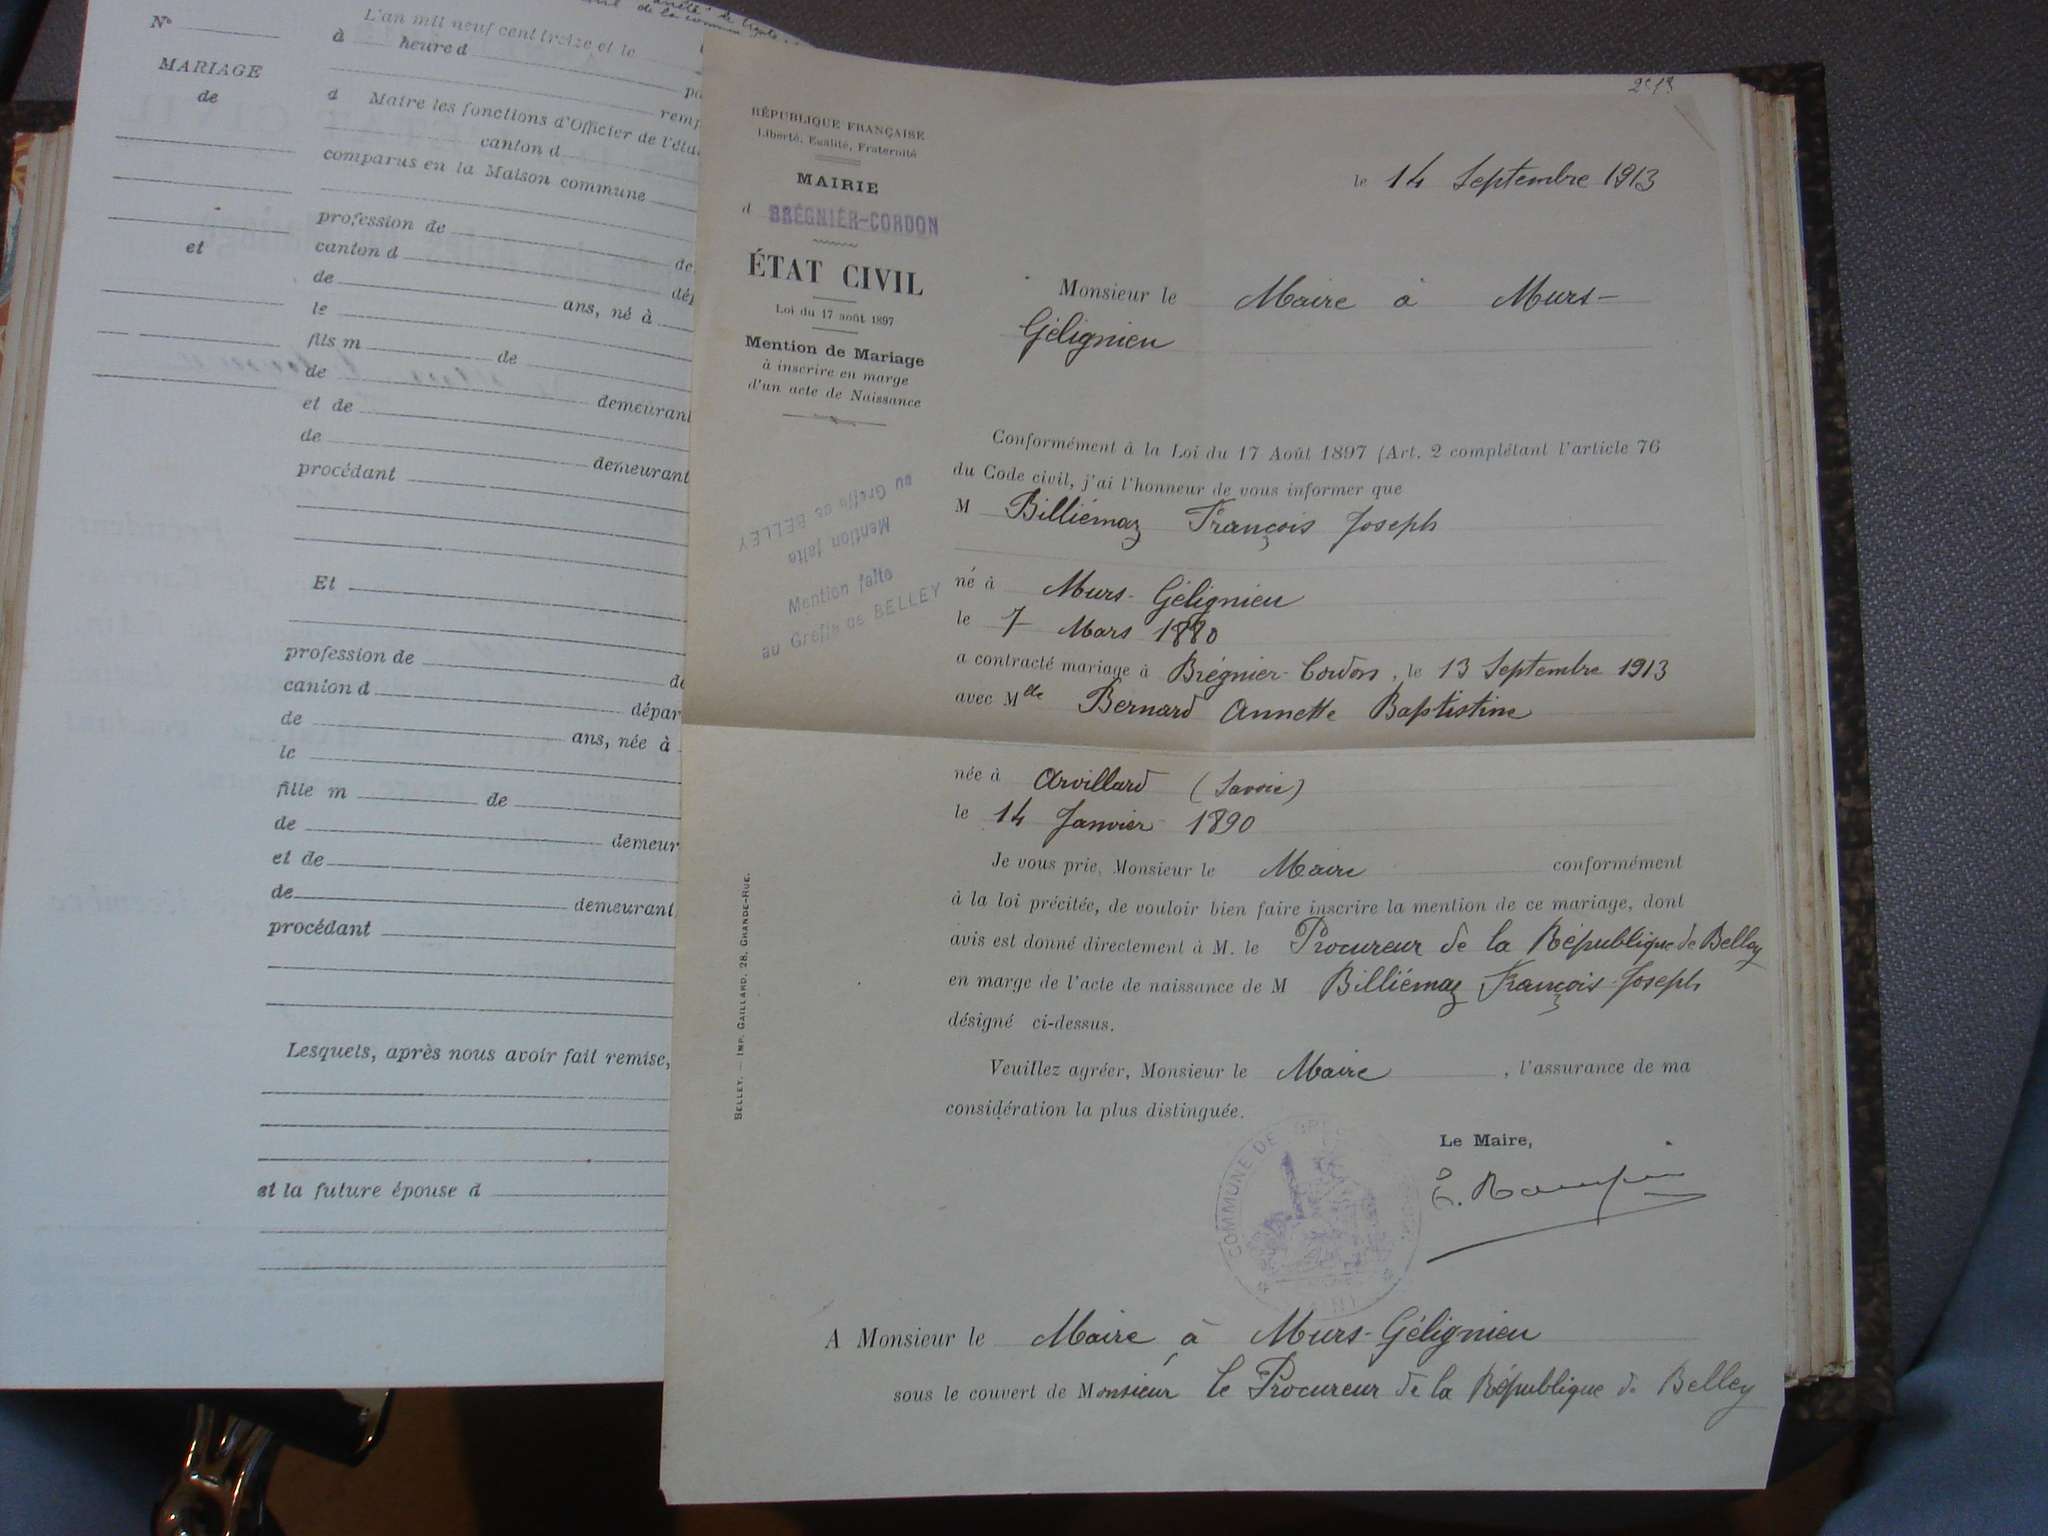 N°
MARIAGE
de
et
L'an mil neuf cent treize et le
à heure d
d Maire les fonctions d'Officier de l'éta
canton d
comparus en la Maison commune
profession de de
canton d dép
de ans, né à
le
fils m de
de demeurant
et de
de demeurant
procédant
Et
profession de de
canton d dépar
de ans, née à
le
fille m de
de demeur
et de
de demeurant
procédant
Lesquels, après nous avoir fait remise,
et la future épouse d
RÉPUBLIQUE FRANÇAISE
Liberté, Egalité, Fraternité
MAIRIE
d BRÉGNIER-CORDON
ÉTAT CIVIL
Loi du 17 août 1897
Mention de Mariage
à inscrire en marge
d'un acte de Naissance
Mention faite
au Greffe de BELLEY
Mention faite
au Greffe de BELLEY
BELLEY. — IMP. GAILLARD, 28, GRANDE-RUE.
le 14 Septembre 1913
Monsieur le Maire à Murs-
Gélignieu
Conformément à la Loi du 17 Août 1897 (Art. 2 complétant l'article 76
du Code civil, j'ai l'honneur de vous informer que
M Billiémaz François Joseph
né à Murs-Gélignieu
le 7 Mars 1880
a contracté mariage à Brégnier-Cordon, le 13 Septembre 1913
avec Melle Bernard Annette Baptistine
née à Arvillard (Savoie)
le 14 Janvier 1890
Je vous prie, Monsieur le Maire conformément
à la loi précitée, de vouloir bien faire inscrire la mention de ce mariage, dont
avis est donné directement à M. le Procureur de la République de Belley
en marge de l'acte de naissance de M Billiémaz François-Joseph
désigné ci-dessus.
Veuillez agréer, Monsieur le Maire, l'assurance de ma
considération la plus distinguée.
Le Maire,
COMMUNE DE
A Monsieur le Maire à Murs-Gélignieu
sous le couvert de Monsieur le Procureur de la République de Belley